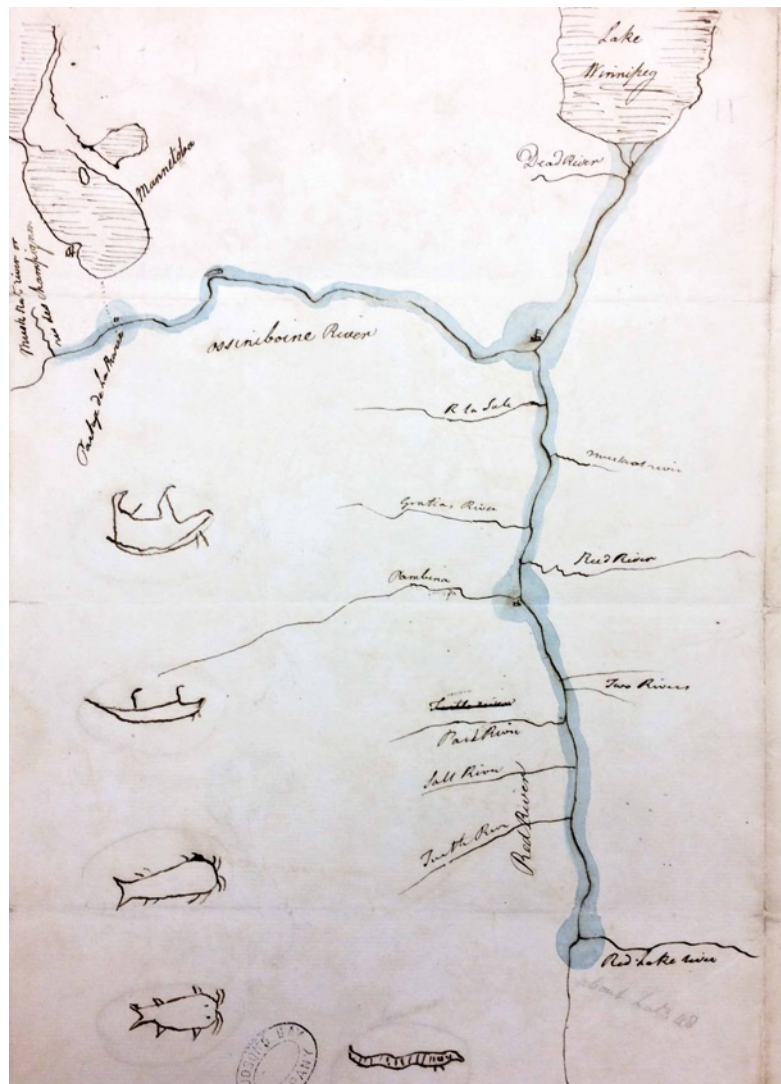 Lake
Winnipeg
Dead River
Mannetoba
Muskrat river or
des champignon
Portage de La Prairie
Ossiniboine River
R la Sale
muskrat river
Gratias River
Reed River
Pambina
Two Rivers
Turtle river
Park River
Salt River
Turtle River
Red River
Red Lake river
about Lat. 48
HUDSONS BAY
COMPANY